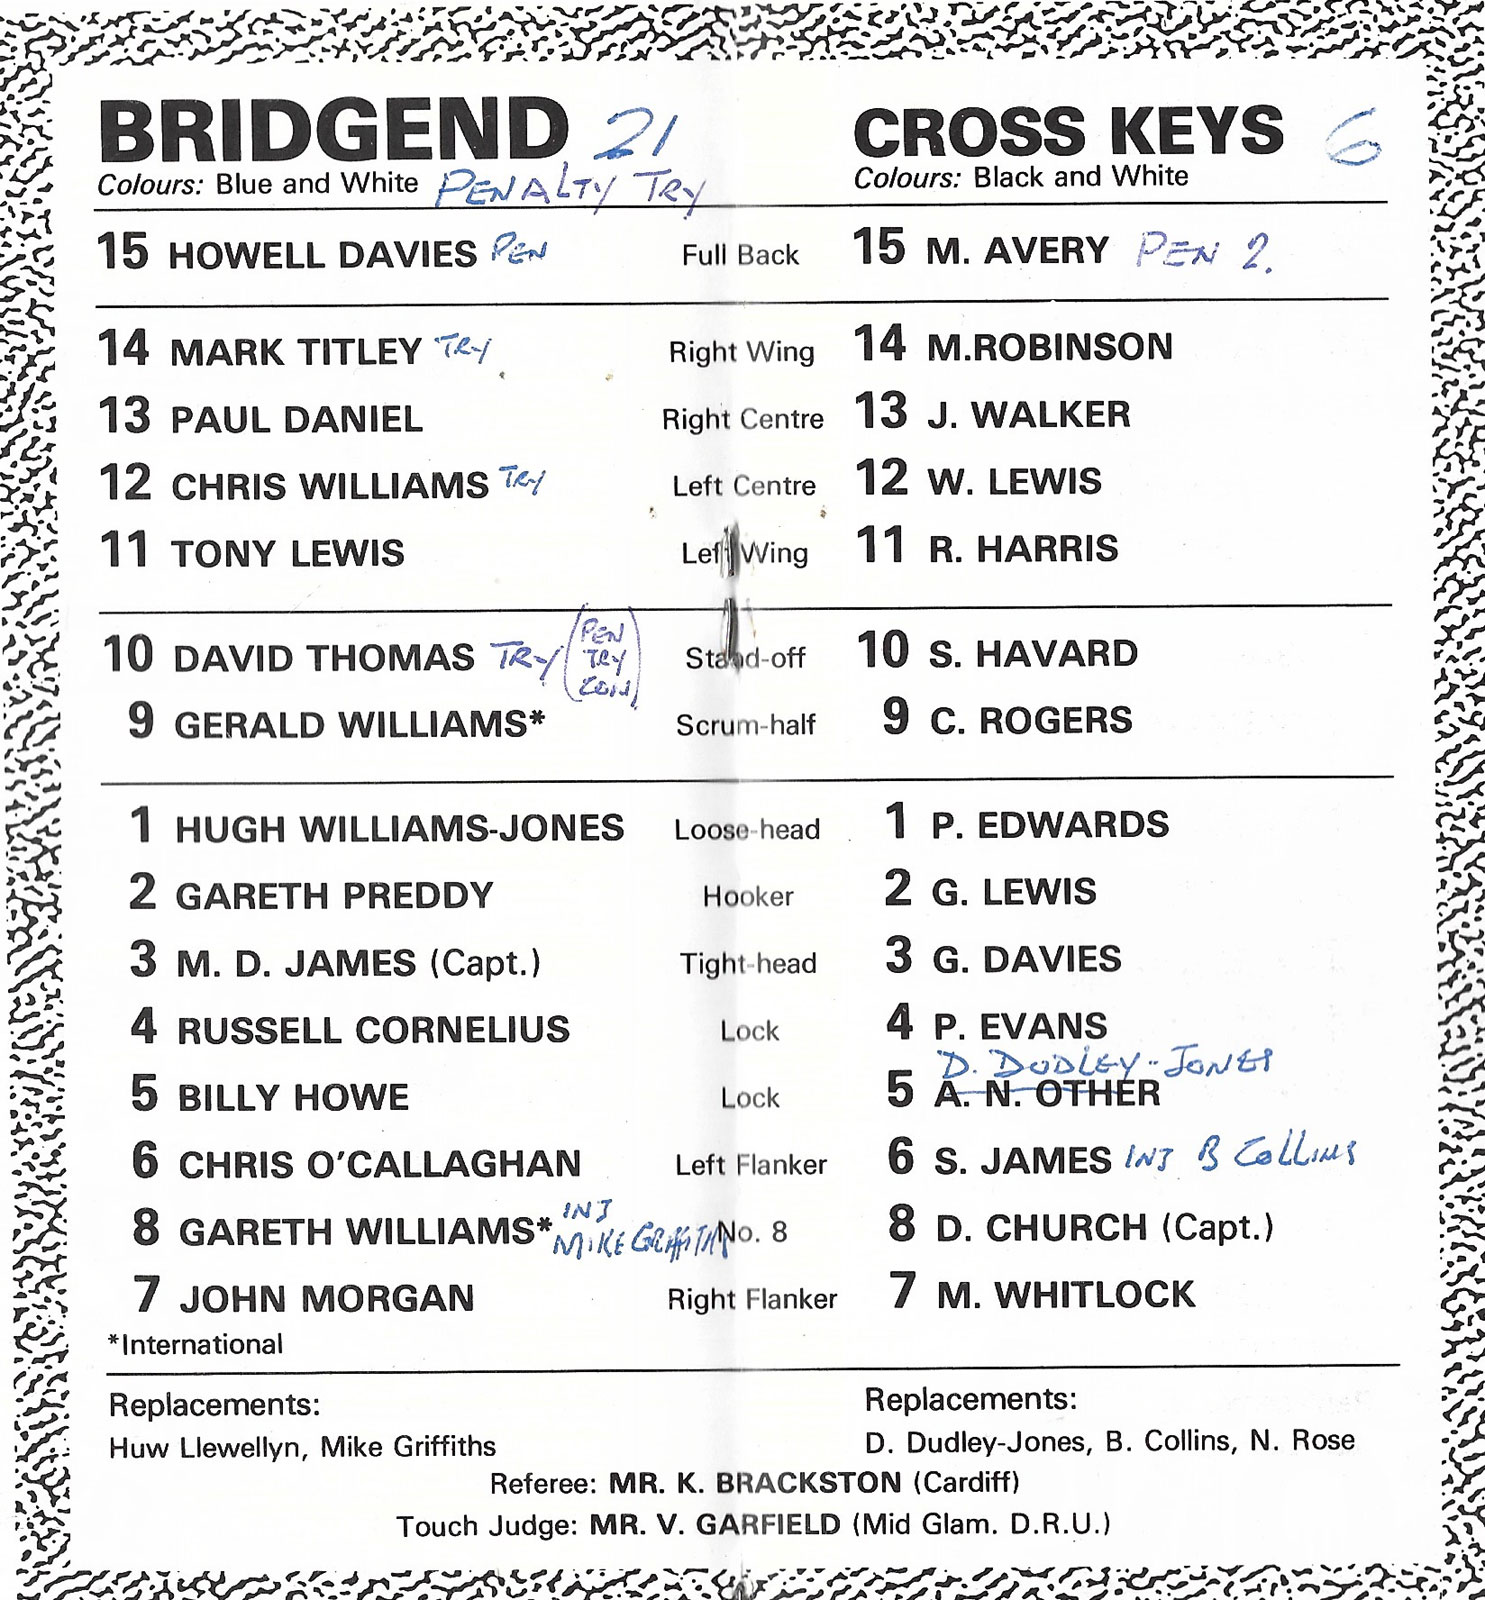 BRIDGEND 21 CROSS KEYS 6
Colours: Blue and White PENALTY TRY Colours: Black and White
15 HOWELL DAVIES PEN Full Back 15 M. AVERY PEN 2.
14 MARK TITLEY TRY Right Wing 14 M.ROBINSON
13 PAUL DANIEL Right Centre 13 J. WALKER
12 CHRIS WILLIAMS TRY Left Centre 12 W. LEWIS
11 TONY LEWIS Left Wing 11 R. HARRIS
10 DAVID THOMAS TRY (PEN TRY CON) Stand-off 10 S. HAVARD
9 GERALD WILLIAMS* Scrum-half 9 C. ROGERS
1 HUGH WILLIAMS-JONES Loose-head 1 P. EDWARDS
2 GARETH PREDDY Hooker 2 G. LEWIS
3 M. D. JAMES (Capt.) Tight-head 3 G. DAVIES
4 RUSSELL CORNELIUS Lock 4 P. EVANS
D. DUDLEY-JONES
5 BILLY HOWE Lock 5 A. N. OTHER
6 CHRIS O'CALLAGHAN Left Flanker 6 S. JAMES INJ B COLLINS
8 GARETH WILLIAMS* INJ MIKE GRIFFITHS No. 8 8 D. CHURCH (Capt.)
7 JOHN MORGAN Right Flanker 7 M. WHITLOCK
*International
Replacements: Replacements:
Huw Llewellyn, Mike Griffiths D. Dudley-Jones, B. Collins, N. Rose
Referee: MR. K. BRACKSTON (Cardiff)
Touch Judge: MR. V. GARFIELD (Mid Glam. D.R.U.)